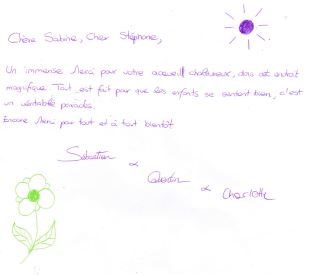 Chère Sabine, Cher Stéphane,
Un immense Merci pour votre accueil chaleureux, dans cet endroit
magnifique. Tout est fait pour que les enfants se sentent bien, c'est
un véritable paradis.
Encore Merci pour tout et à tout bientôt
Sébastien
&
Quentin
& Charlotte